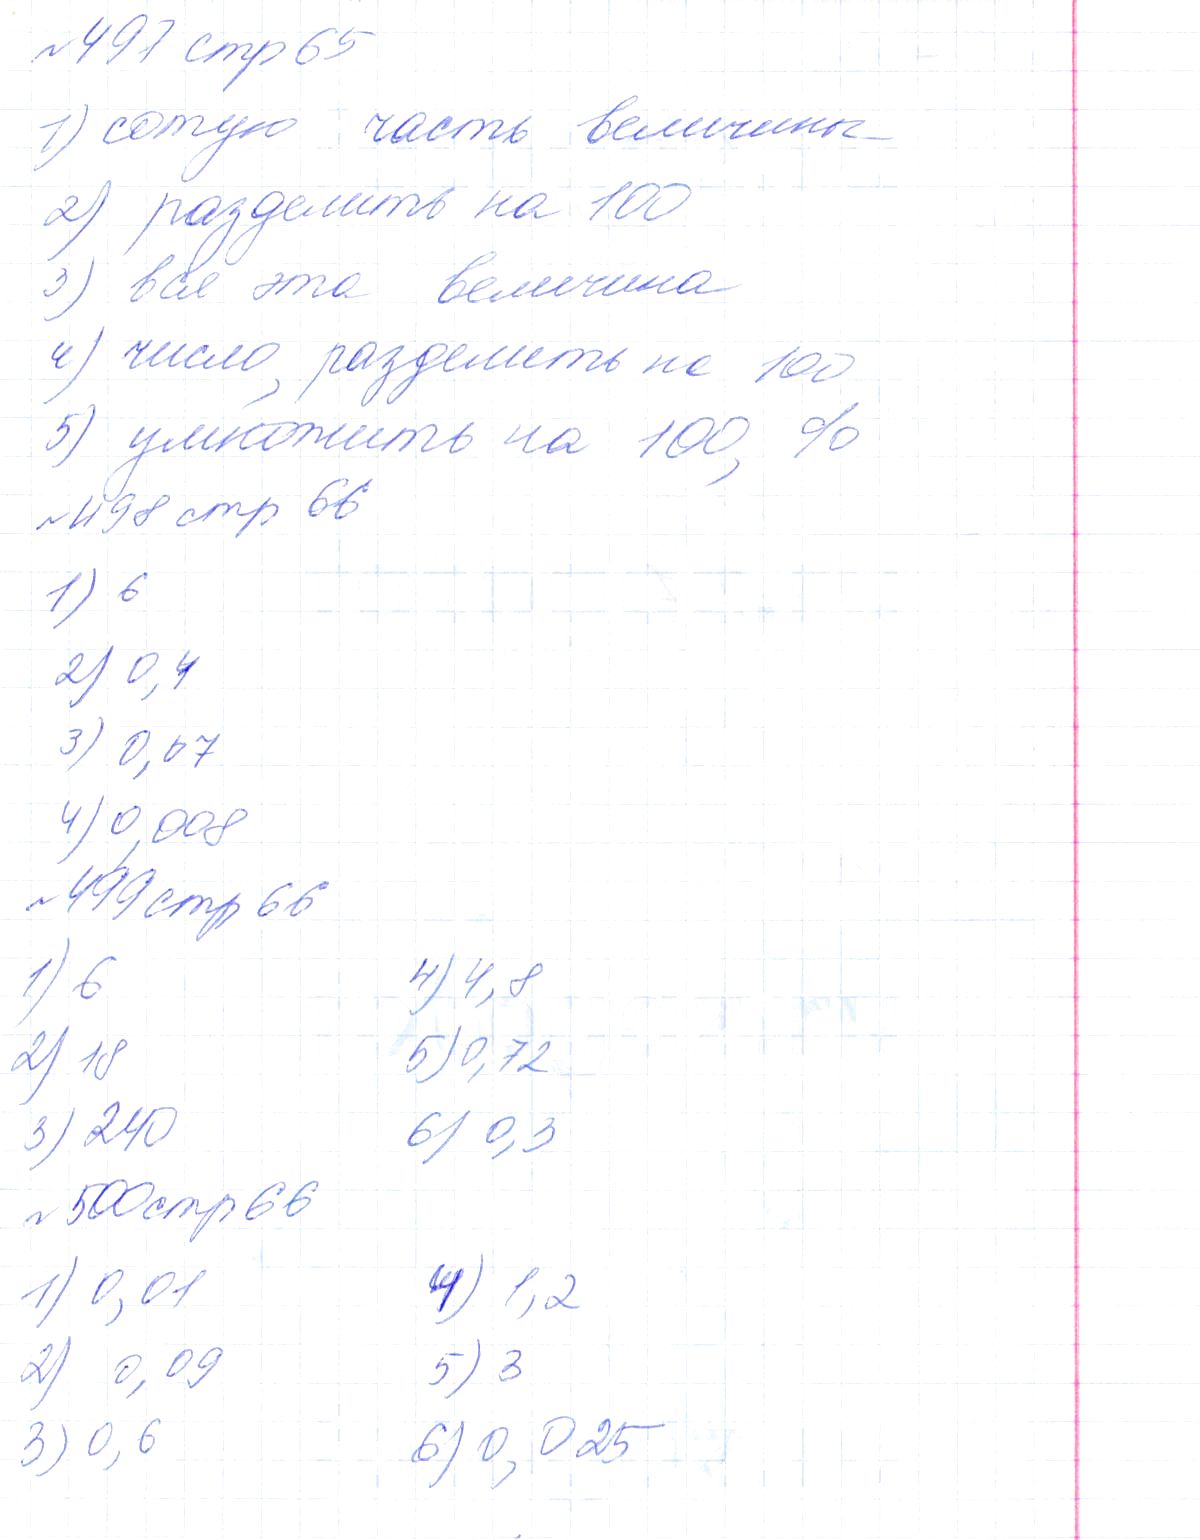 №497 стр 65
1) сотую часть величины
2) разделить на 100
3) вся эта величина
4) число, разделить на 100
5) умножить на 100, %
№498 стр 66
1) 6
2) 0,4
3) 0,07
4) 0,008
№499 стр 66
1) 6 4) 4,8
2) 18 5) 0,72
3) 240 6) 0,3
№500 стр 66
1) 0,01 4) 1,2
2) 0,09 5) 3
3) 0,6 6) 0,025